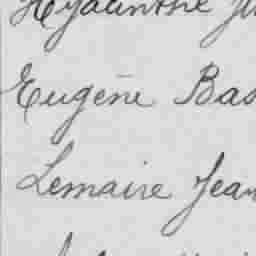 Hyacinthe
Eugène Bas
Lemaire Jean